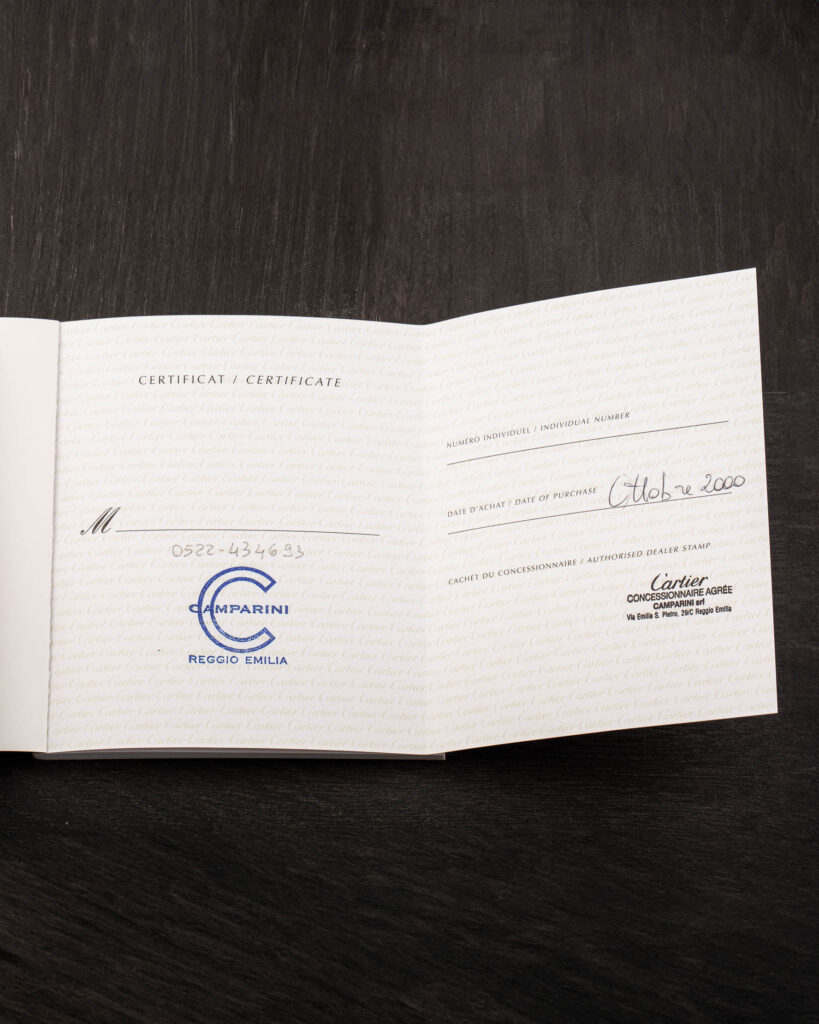 CERTIFICAT / CERTIFICATE
M
0522-434693
CAMPARINI
REGGIO EMILIA
NUMÉRO INDIVIDUEL / INDIVIDUAL NUMBER
DATE D'ACHAT / DATE OF PURCHASE Ottobre 2000
CACHET DU CONCESSIONNAIRE / AUTHORISED DEALER STAMP
Cartier
CONCESSIONNAIRE AGRÉE
CAMPARINI srl
Via Emilia S. Pietro, 29/C Reggio Emilia